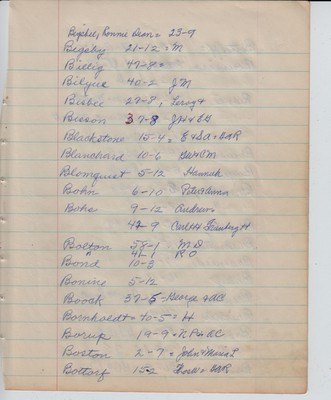 Bigbee, Ronnie Dean = 23-9
Bigsby 21-12 = M
Billig 47-8 =
Bilyeu 40-2 J M
Bisbee 27-8, Leroy +
Bisson 31-8 J H & C G
Blackstone 15-4 = E & S A + E A R
Blanchard 10-6
Blomquist 5-12 Hannah
Bohn 6-10 Peter & Anna
Bohs 9-12 Andrew
47-9 Carl H &
Bolton 58-1 M D
" 41-1 R O
Bond 10-3
Bonine 5-12
Boock 37-5 - George & AC
Bornholdt = 70-5 = H
Borup 19-9 = N P & D C
Boston 2-7 = John & Maria L
Bottorf 15-2 & E A R